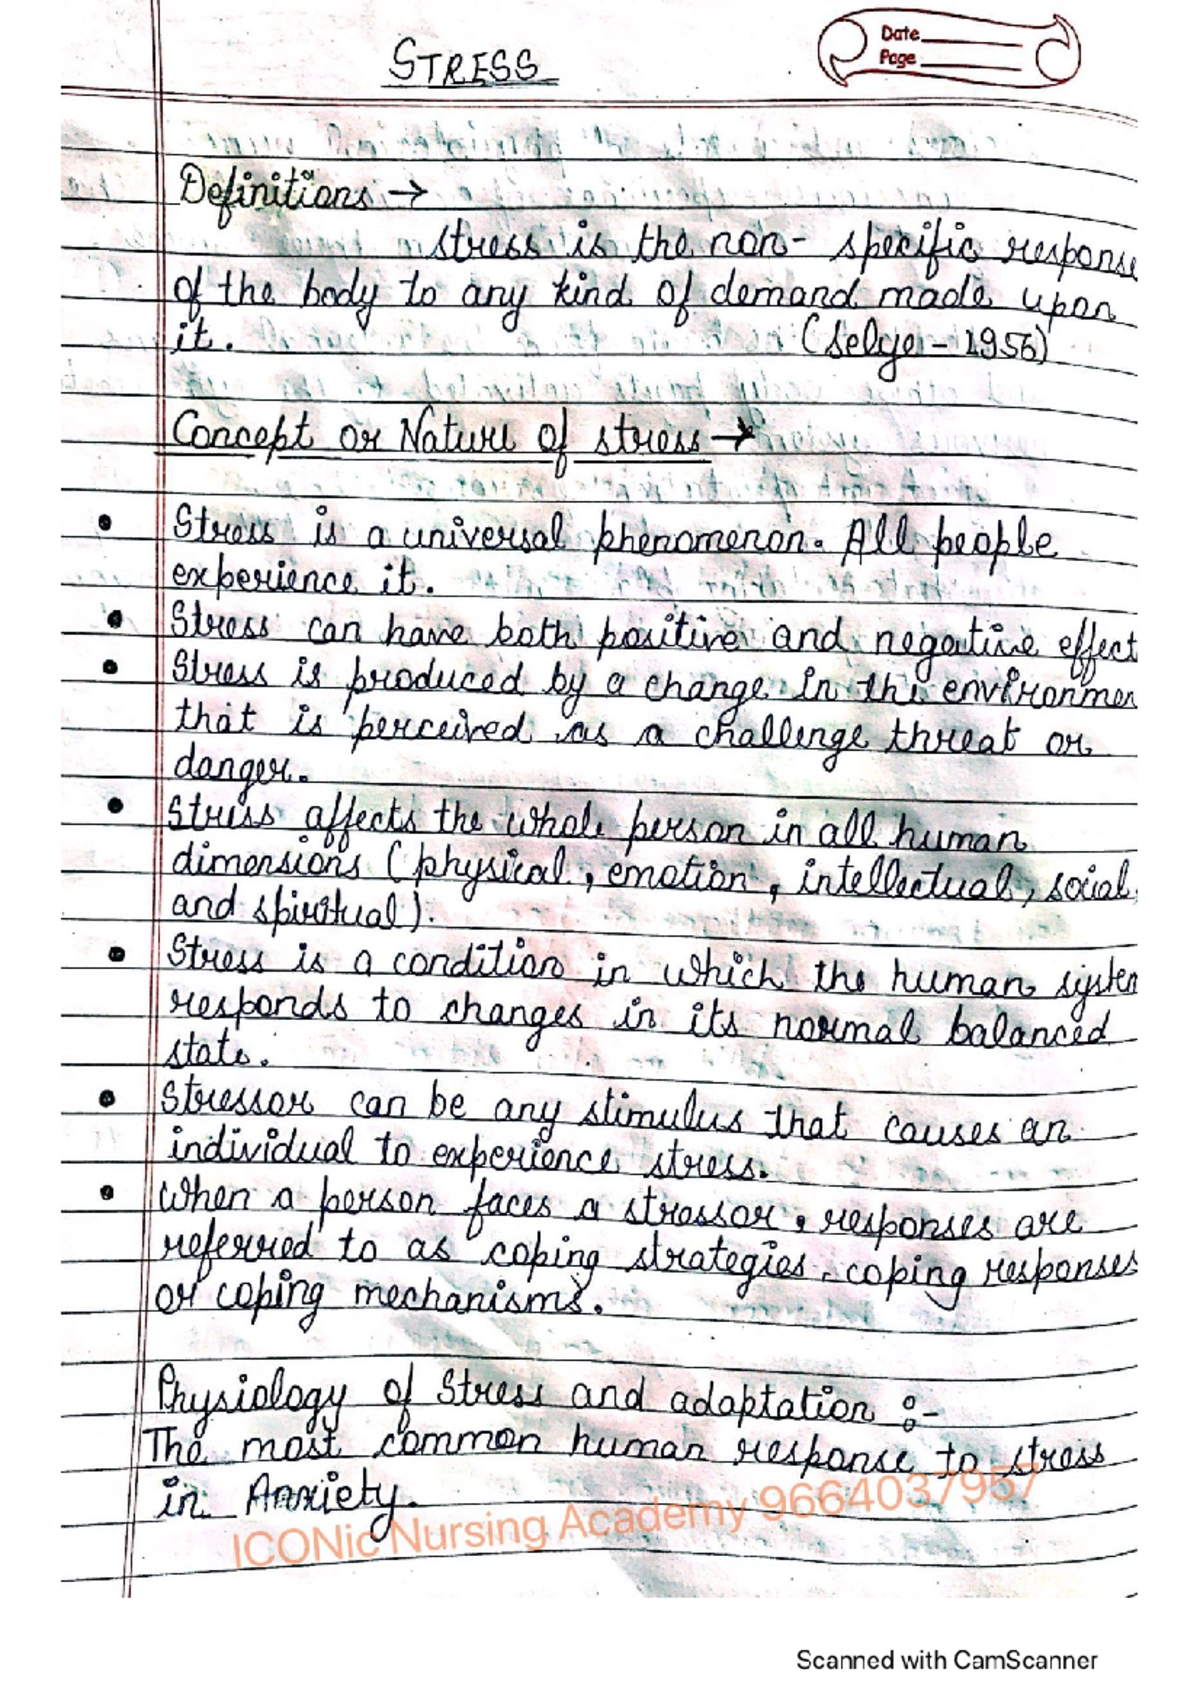 STRESS
Date
Page
Definitions →
stress is the non- specific response
of the body to any kind of demand made upon
it. (Selye - 1956)
Concept or Nature of stress →
• Stress is a universal phenomenon. All people
experience it.
• Stress can have both positive and negative effect
• Stress is produced by a change in the environmen
that is perceived as a challenge threat or
danger.
• Stress affects the whole person in all human
dimensions (physical, emotion, intellectual, social,
and spiritual).
• Stress is a condition in which the human system
responds to changes in its normal balanced
state.
• Stressor can be any stimulus that causes an
individual to experience stress.
• When a person faces a stressor, responses are
referred to as coping strategies, coping responses
or coping mechanisms.
Physiology of Stress and adaptation :-
The most common human response to stress
in Anxiety.
ICONic Nursing Academy 9664037957
Scanned with CamScanner